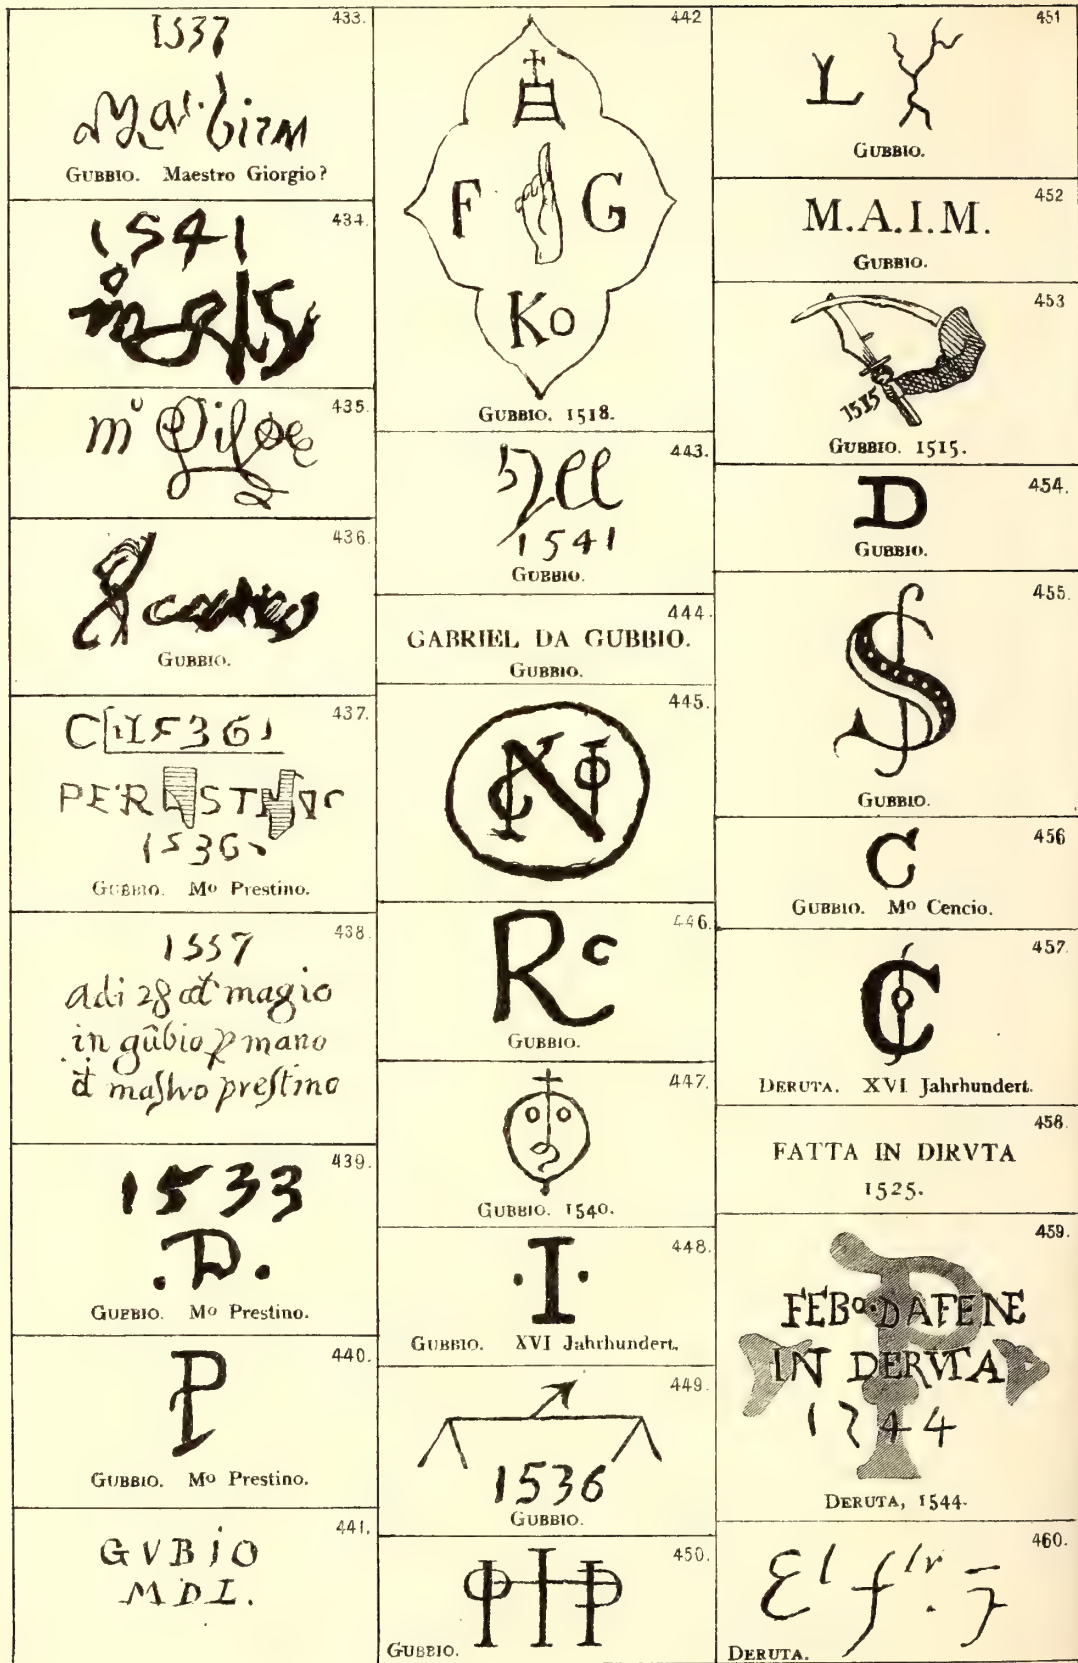 433.
1537
GUBBIO. Maestro Giorgio?
434.
1541
435.
436.
GUBBIO.
437.
1536
PER
1536
GUBBIO. Mo Prestino.
438.
1557
adi 28 de magio
in gûbio p mano
d mastro prestino
439.
1533
.P.
GUBBIO. Mo Prestino.
440.
P
GUBBIO. Mo Prestino.
441.
GVBiO
MDI.
442
F G
Ko
GUBBIO. 1518.
443.
1541
GUBBIO.
444.
GABRIEL DA GUBBIO.
GUBBIO.
445.
446.
Rc
GUBBIO.
447.
GUBBIO. 1540.
448.
·I·
GUBBIO. XVI Jahrhundert.
449.
1536
GUBBIO.
450.
GUBBIO.
451
L
GUBBIO.
452
M.A.I.M.
GUBBIO.
453
1515
GUBBIO. 1515.
454.
D
GUBBIO.
455.
S
GUBBIO.
456
C
GUBBIO. Mo Cencio.
457.
C
DERUTA. XVI Jahrhundert.
458.
FATTA IN DIRVTA
1525.
459.
P
FEBo·DAFENE
IN DERVTA
1544
DERUTA, 1544.
460.
El f
DERUTA.